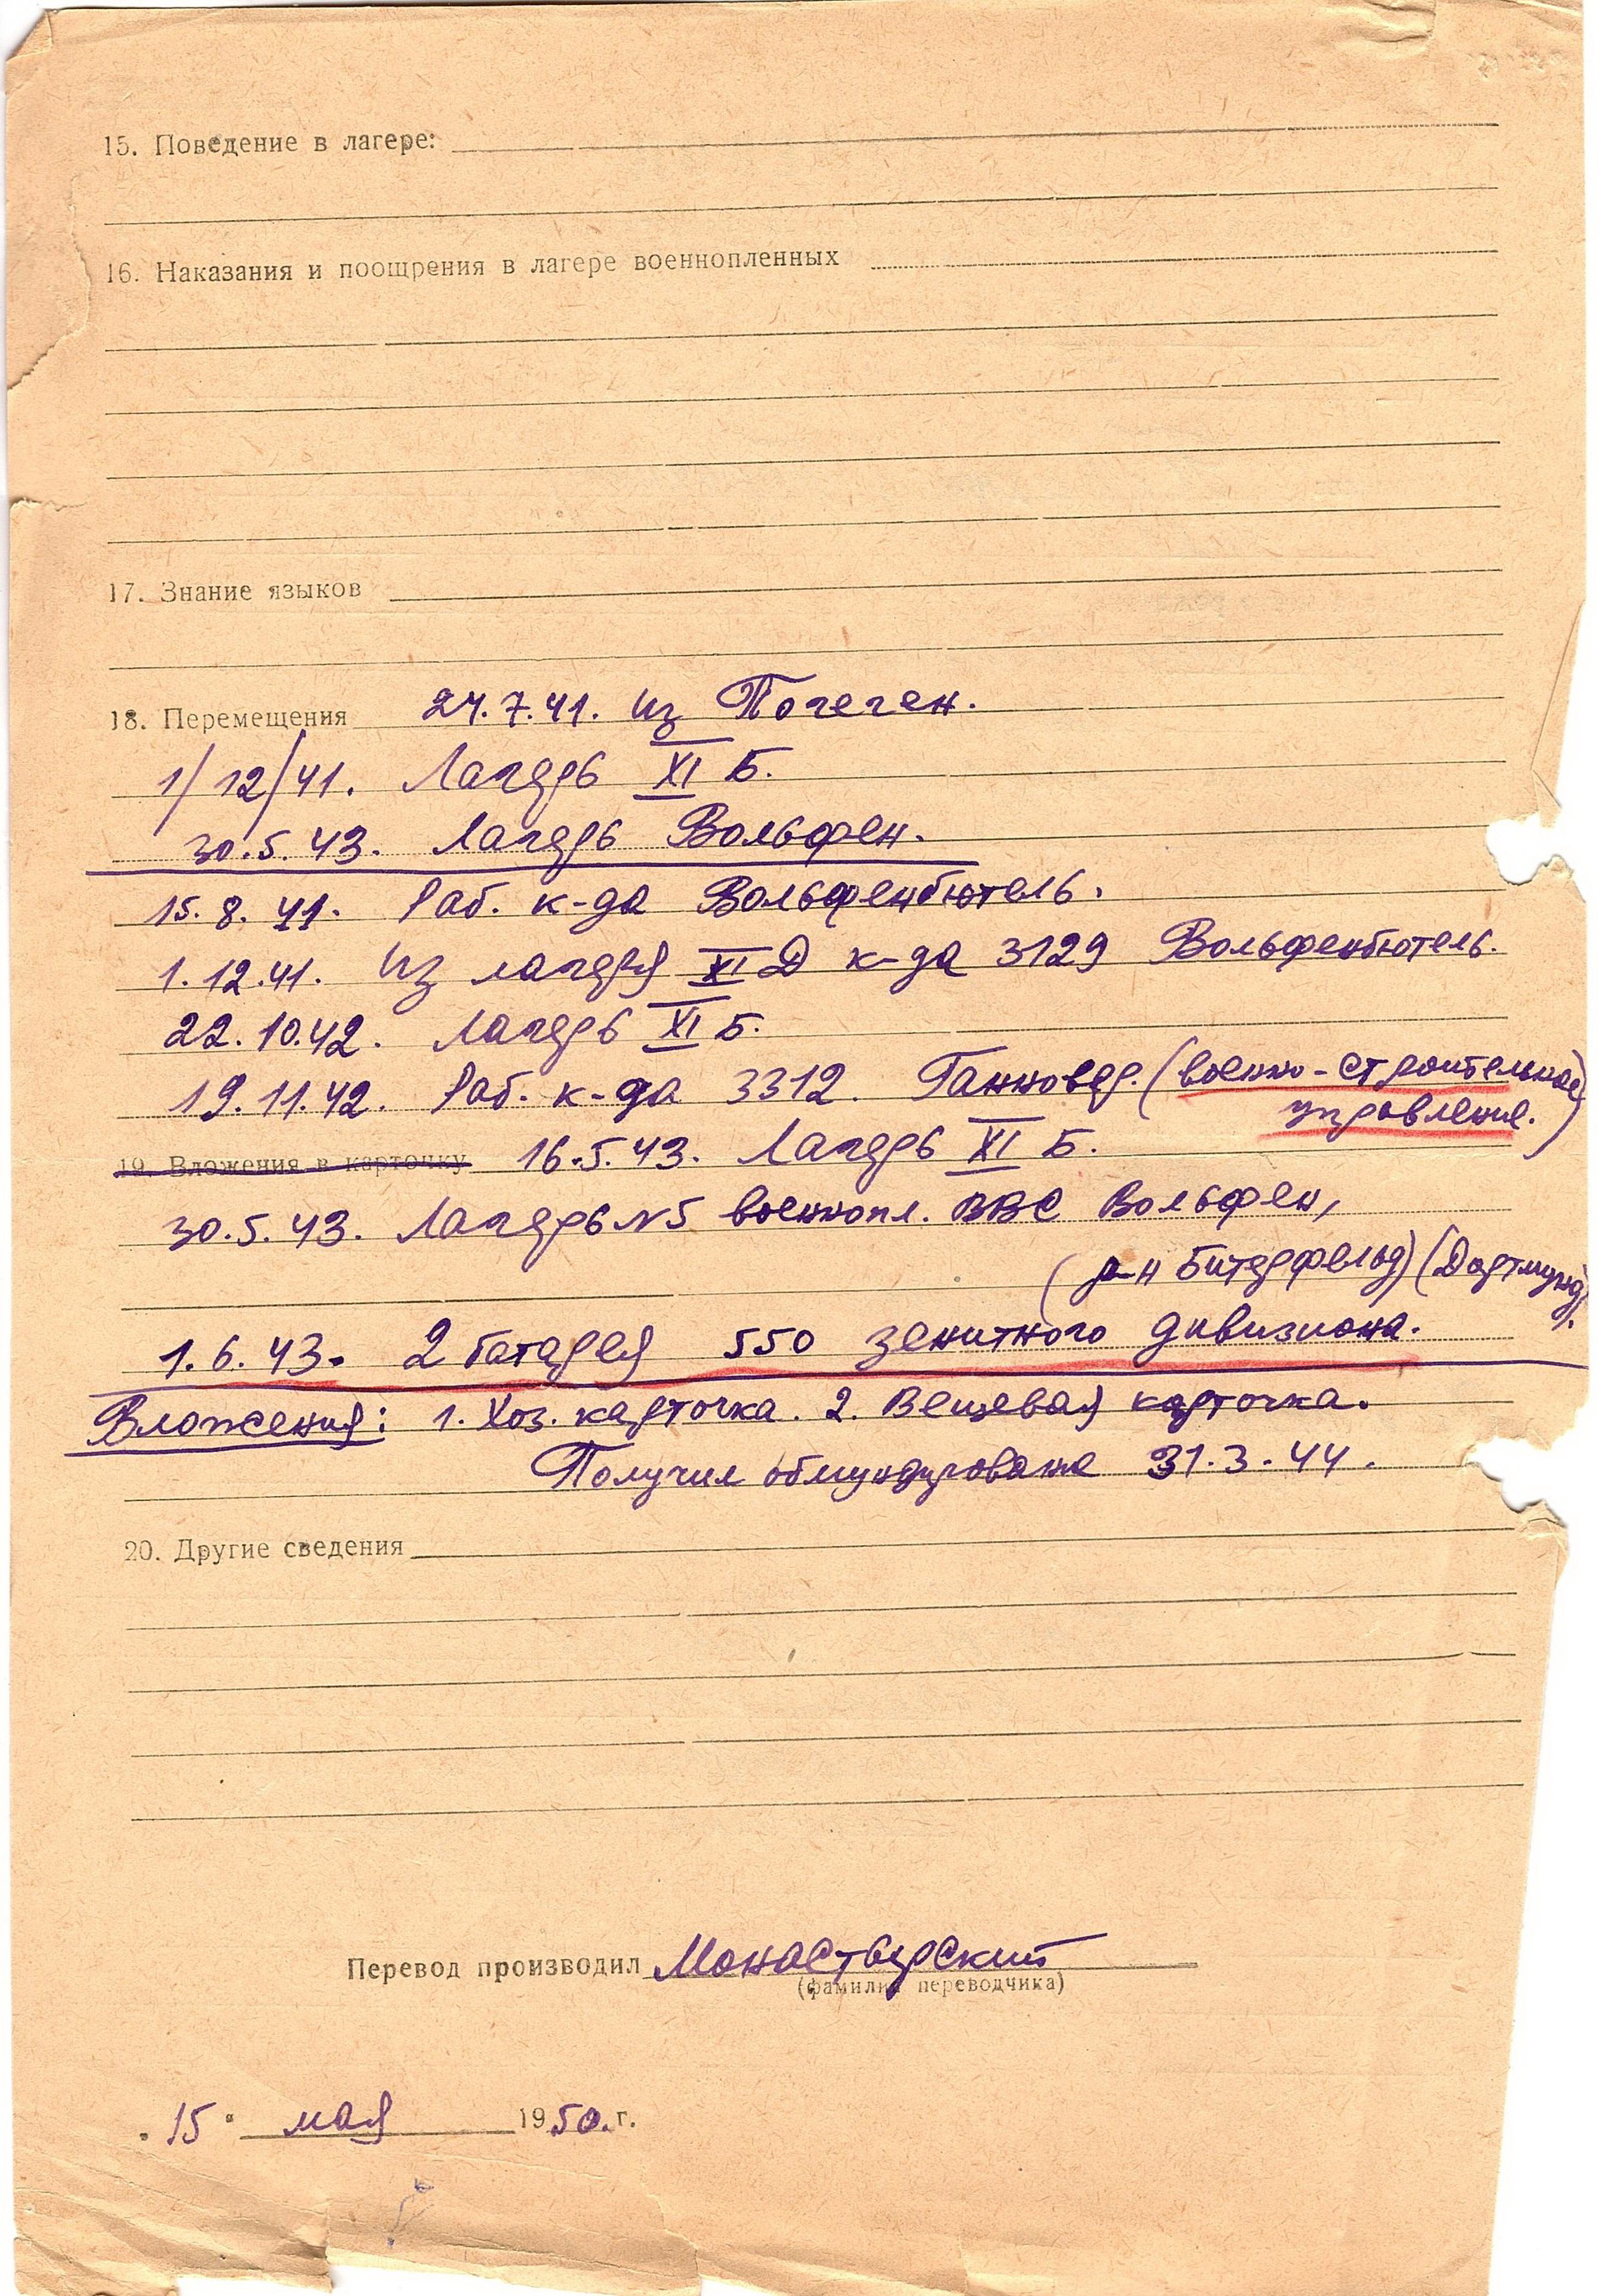 15. Поведение в лагере:
16. Наказания и поощрения в лагере военнопленных
17. Знание языков
18. Перемещения 24.7.41. из Погеген.
1/12/41. Лагерь XI Б.
30.5.43. Лагерь Вольфен.
15.8.41. Раб. к-да Вольфенбютель.
1.12.41. Из лагеря XI Д к-да 3129 Вольфенбютель.
22.10.42. Лагерь XI Б.
19.11.42. Раб. к-да 3312. Ганновер. (военно-строительное
управление.)
19. Вложения в карточку 16.5.43. Лагерь XI Б.
30.5.43. Лагерь №5 военнопл. ВВС Вольфен,
(р-н Битерфельд) (Дортмунд).
1.6.43. 2 батарея 550 зенитного дивизиона.
Вложения: 1. Хоз. карточка. 2. Вещевая карточка.
Получил обмундирование 31.3.44.
20. Другие сведения
Перевод производил Монастырский
(фамилия переводчика)
"15" мая 1950.г.